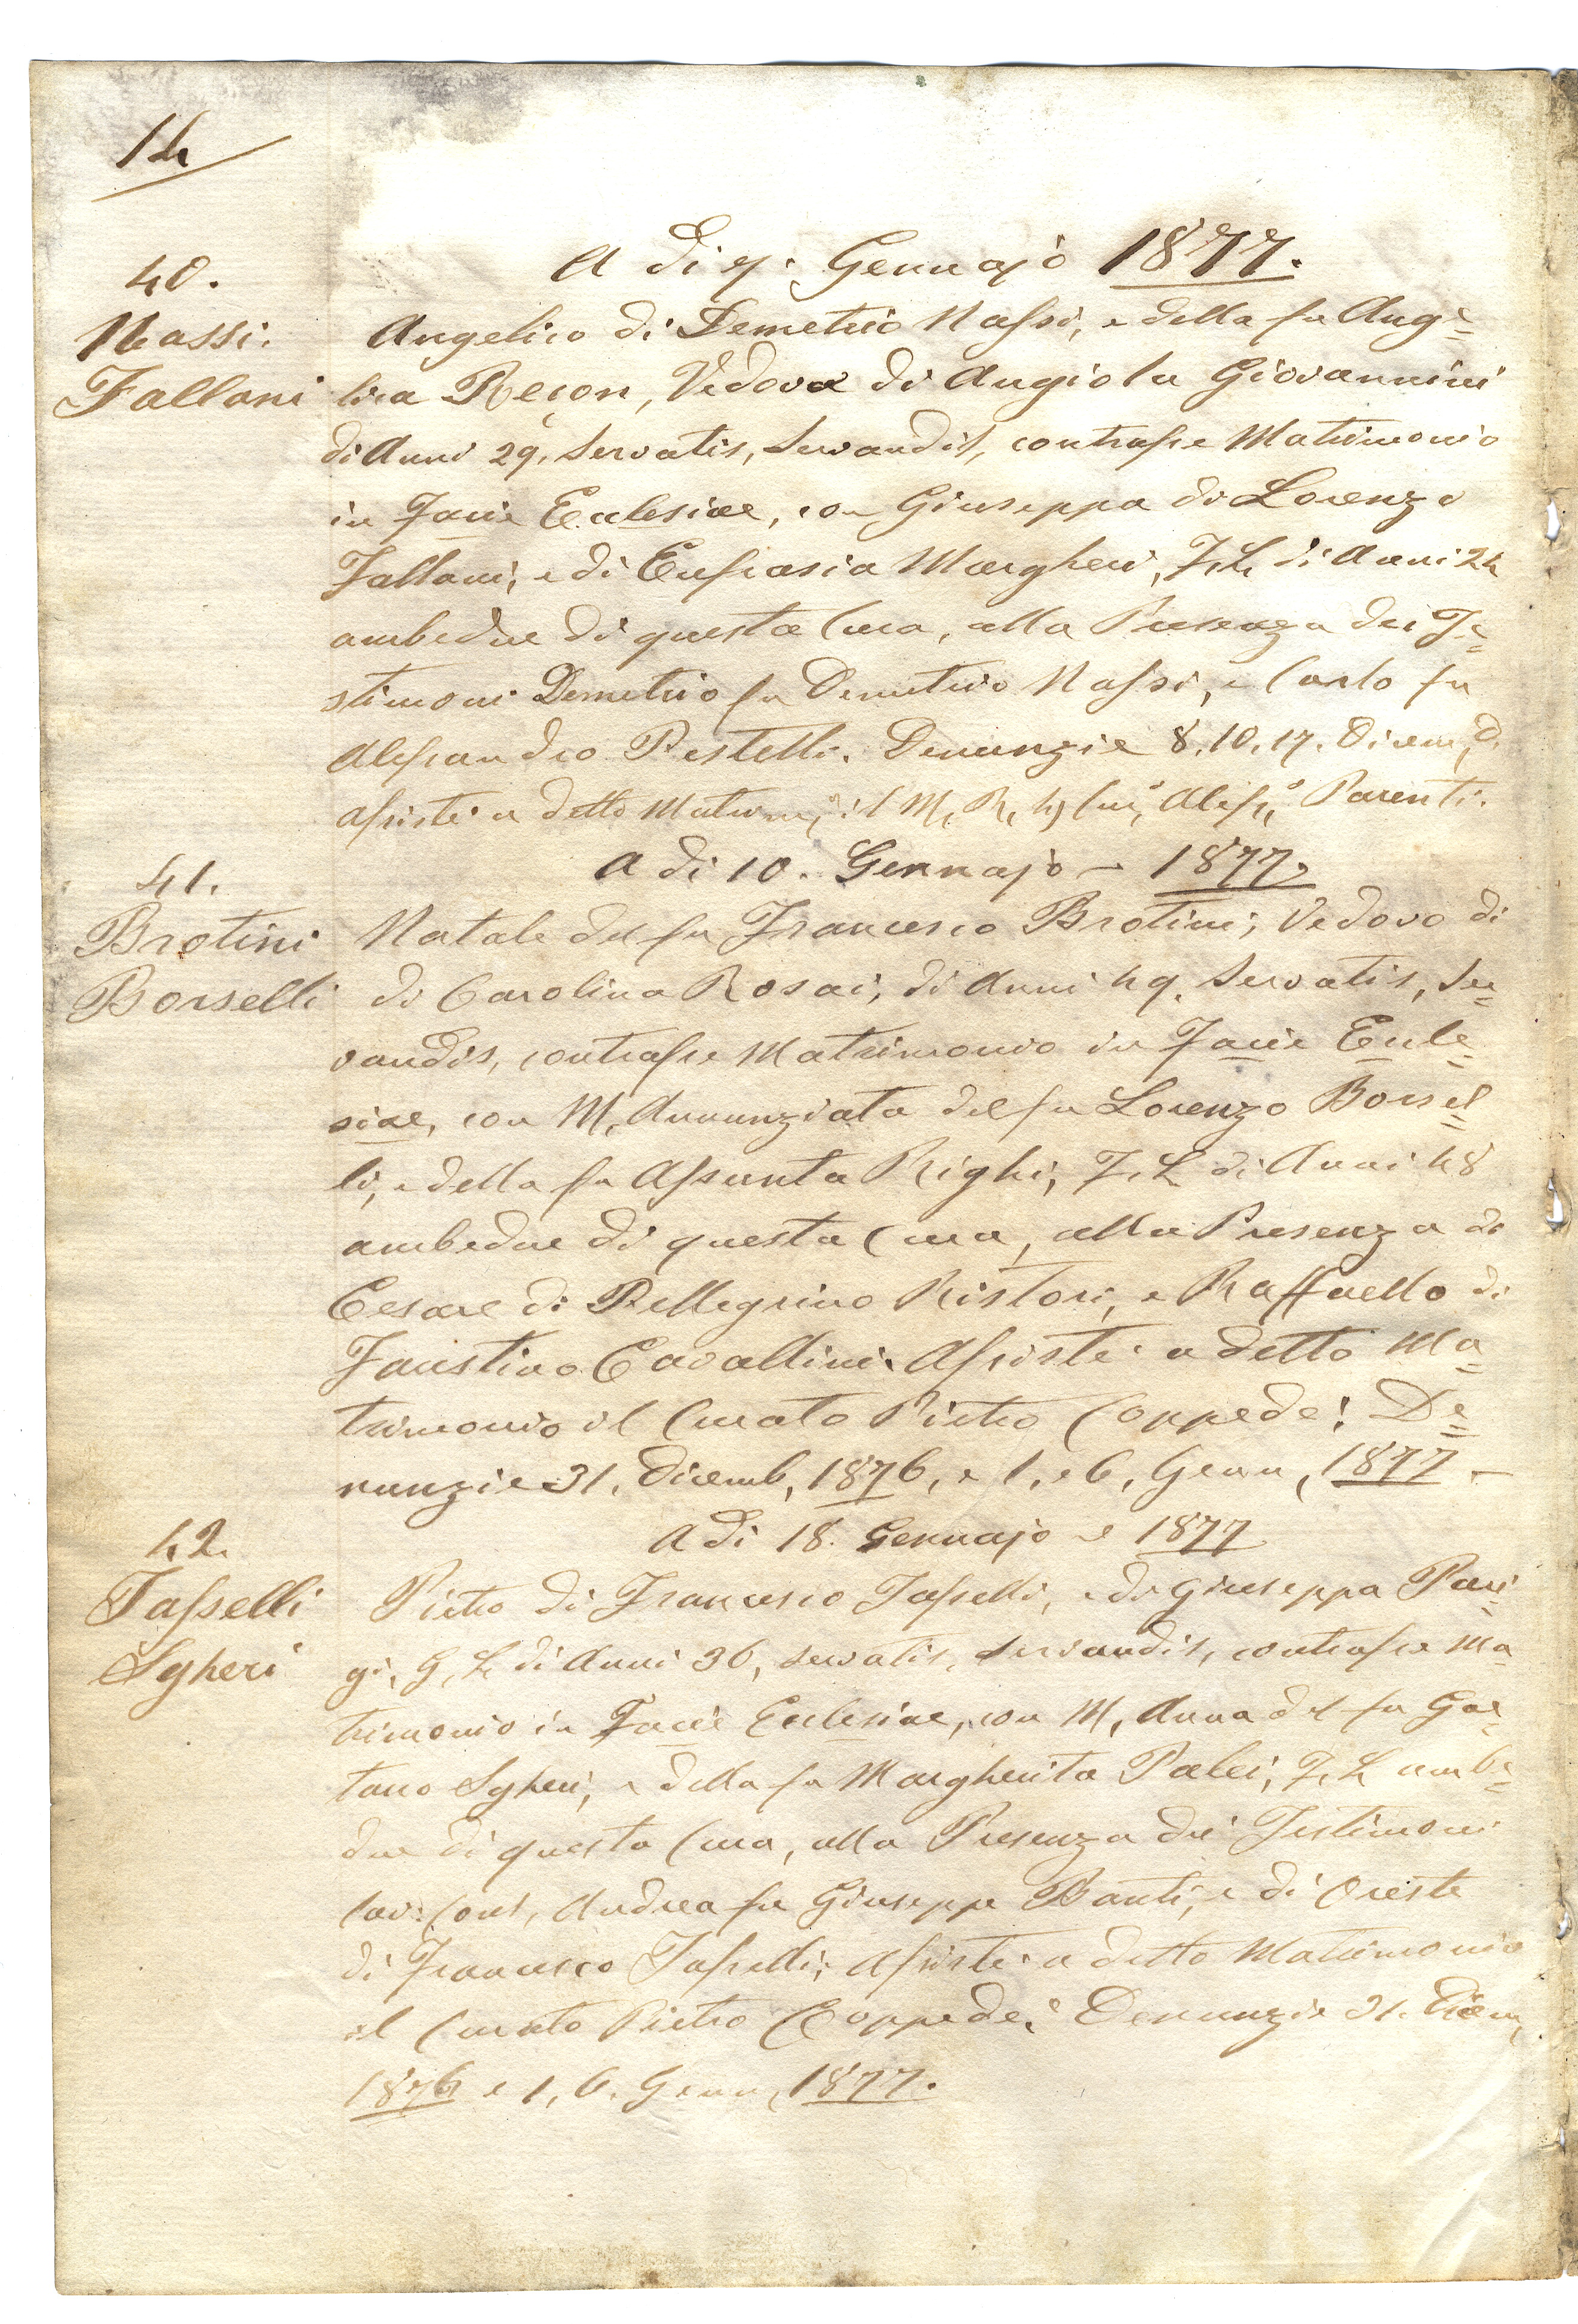 14
A di 7. Gennajo 1877.
40.
Nassi.
Fallani
Angelico di Demetrio Nassi, e della fu Ange=
lica Recon, Vedovo di Angiola Giovannini
di Anni 29, Servatis, Servandis, contrasse Matrimonio
in Facie Ecclesiae, con Giuseppa di Lorenzo
Fallani, e di Eufrasia Margheri, F. L. di Anni 24
ambedue di questa Cura, alla Presenza dei Te=
stimoni Demetrio fu Demetrio Nassi, e Carlo fu
Alessandro Pestelli. Denunzie 8. 10. 17. Dicem,
Assistè a detto Matrim, il M, R, Parenti.
A di 10. Gennajo – 1877.
41.
Brotini
Borselli
Natale del fu Francesco Brotini, Vedovo di
di Carolina Rosai, di Anni 49. Servatis, Ser=
vandis, contrasse Matrimonio in Facie Eccle=
siae, con M, Annunziata del fu Lorenzo Borsel=
li, e della fu Assunta Righi, F. L. di Anni 48
ambedue di questa Cura, alla Presenza di
Cesare di Pellegrino Ristori, e Raffaello di
Faustino Cavallini. Assistè a detto Ma=
trimonio il Curato Pietro Coppedè: De=
nunzie 31. Dicemb, 1876, e 1, e 6, Genn, 1877 –
A di 18. Gennajo – 1877
42.
Tasselli
Sgheri
Pietro di Francesco Tasselli, e di Giuseppa Pari=
gi, G, L. di Anni 36, servatis, servandis, contrasse Ma=
trimonio in Facie Ecclesiae, con M, Anna del fu Gae=
tano Sgheri, e della fu Margherita Palci, F. L. ambe=
due di questa Cura, alla Presenza dei Testimoni
Andrea fu Giuseppe Banti, e di Oreste
di Francesco Tasselli; Assistè a detto Matrimonio
il Curato Pietro Coppedè: Denunzie 31. Dicem,
1876 e 1, 6. Genn, 1877.